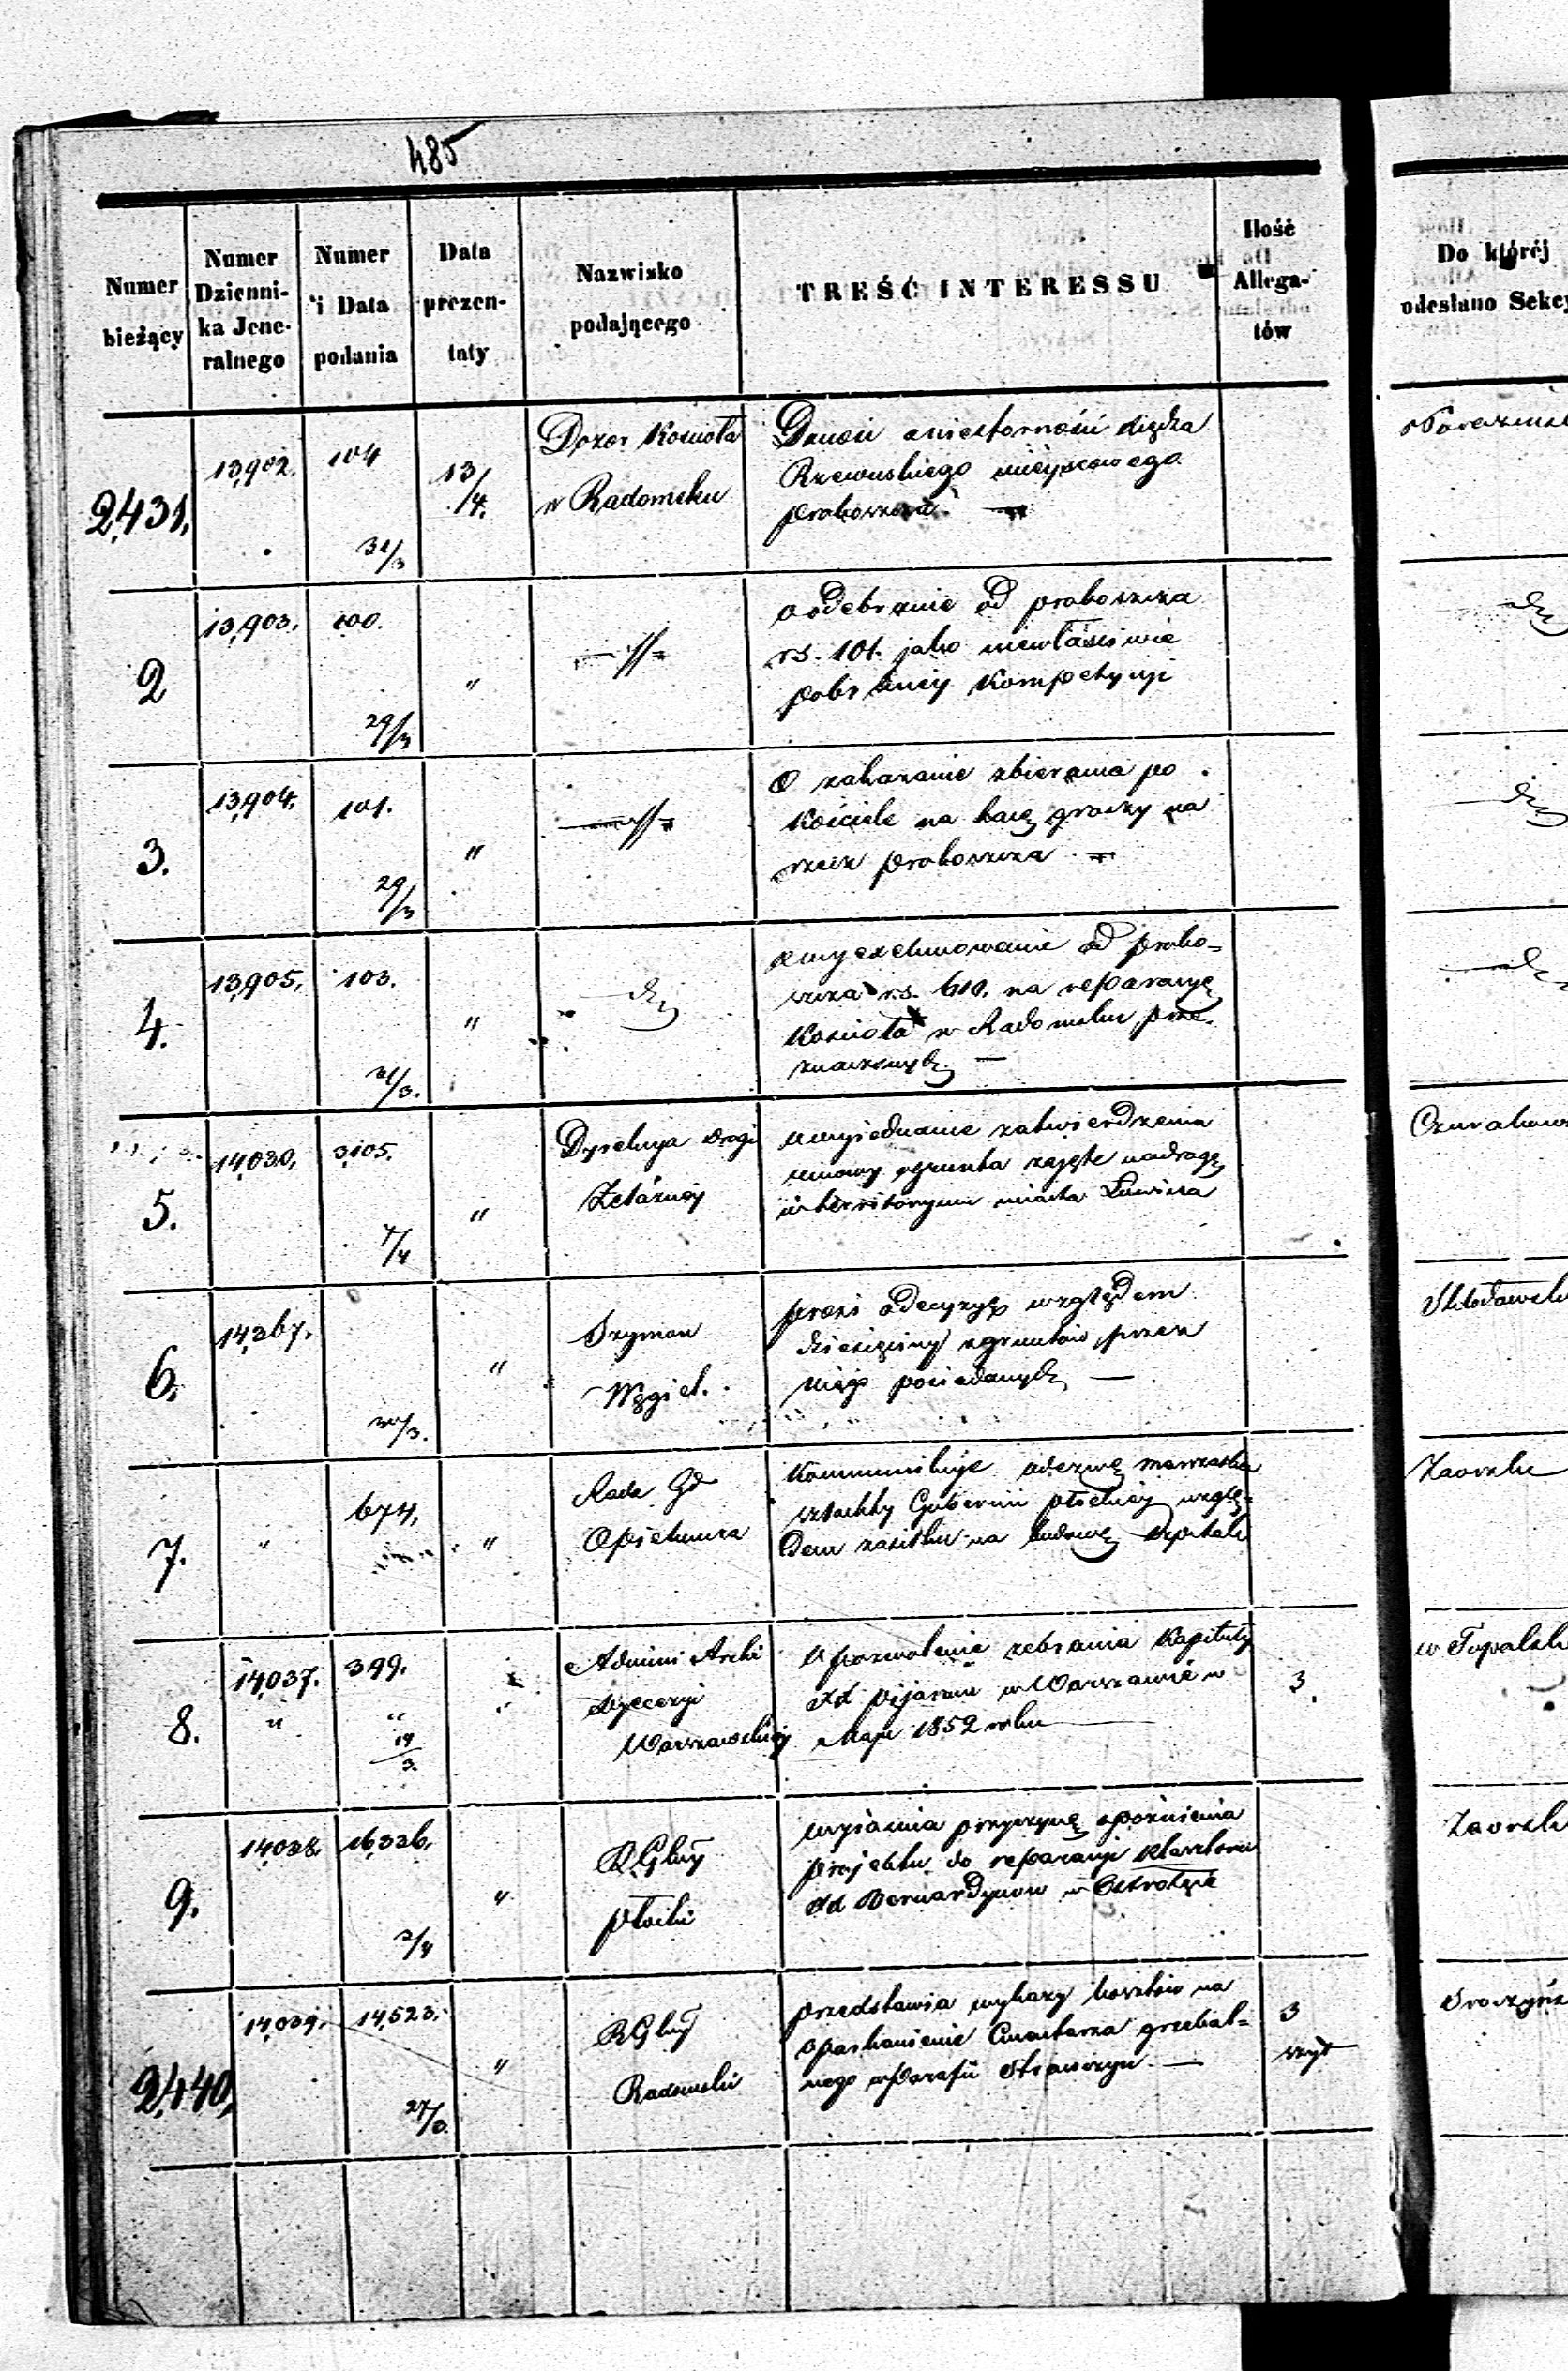 485
Numer bieżący
Numer Dzienni-ka Jene-ralnego
Numer i Data podania
Data prezen-taty
Nazwisko podającego
TREŚĆ INTERESSU
Ilość Allega-tów
Do któréj
odesłano Sekcy
2,431, 13,902. 104 31/3 13/4.
Dozor Kościoła
w Radomsku
Donosi oniestorności Księdza
Rzewuskiego miejscowego
proboszcza. —
2 13,903. 100. 29/3 "
—//—
o odebranie od proboszcza
r.s. 101. jako niewłaściwie
pobranéj Kompetycyi
3. 13,904. 101. 29/3 "
—//—
O zakazanie zbierania po
Kościele na tacę groszy na
rzecz proboszcza —
4. 13,905. 103. 31/3. "
—
o wyexekwowanie od probo=
szcza r.s. 610. na reparacyę
Kościoła w Radomsku prze-
znaczonych. —
5. 14,030, 3,105. 7/4 "
Dyrekcya Drogi
Żelaznéj
o wyjednanie zatwierdzenia
umowy o grunta zajęte na drogę
w territoryum miasta Łowicza
Czurakows
6. 14,367. 30/3. "
Szymon
Węgiel.
prosi o decyzyę względem
dziesięciny z gruntów przez
niego posiadanych —
7. " 674, "
Rada Gł
Opiekuńcza
Kommunikuje odezwę marszałka
szlachty Gubernii płockiéj wzglę=
dem zasiłku na budowę szpitala
8. 14,037. " 399. " 19/3.
Admini Archi
dyecezyi
Warszawskiéj
o pozwolenie zebrania Kapituły
XX Pijarów w Warszawie w
Maju 1852 roku
3.
9. 14,038. 16,326, 2/4 "
RGlny
płocki
wyjaśnia przyczynę opóźnienia
projektu do reparacyi Klasztoru
XX Bernardynów w Ostrołęce
2,440, 14,039. 14,523. 27/3. "
RGlny
Radomski
przedstawia wykazy kosztów na
oparkanienie Cmentarza grzebal=
nego w parafii Strawczyn. —
3
szyt